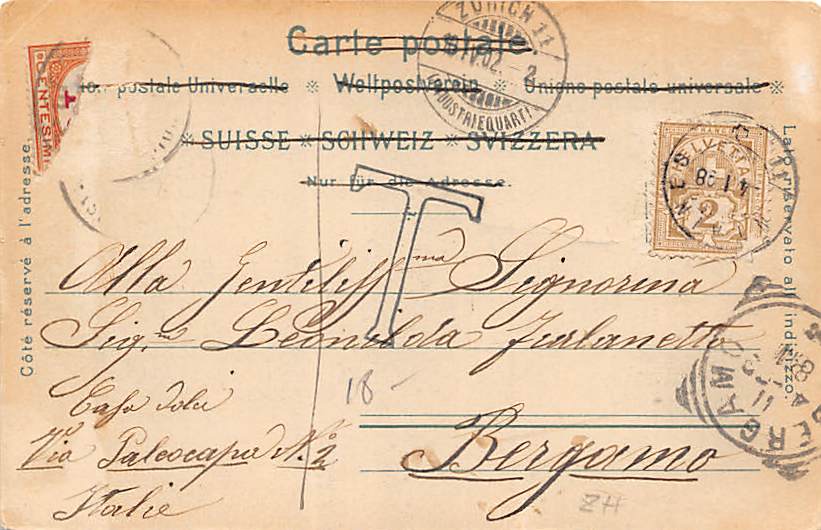 Carte postale.
Union postale Universelle ※ Weltpostverein ※ Unione postale universale ※
※ SUISSE ※ SCHWEIZ ※ SVIZZERA ※
Nur für die Adresse.
Côté réservé à l'adresse.
Lato riservato all'indirizzo.
CENTESIMI
ZÜRICH 11
IV.02. - 2
(INDUSTRIEQUART)
FRANCO
HELVETIA
2
T
Alla Gentiliss.ma Signorina
Sig.na Leonilda Furlanetto
18 -
Via Paleocapa N.º 2
Bergamo
Italie
BERGAMO
ZH